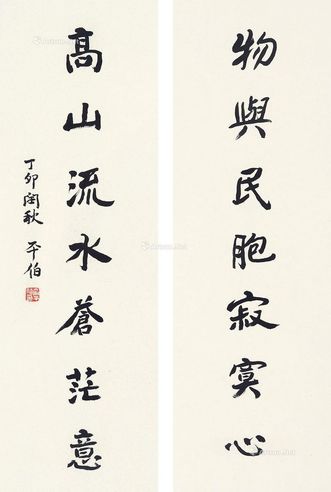 物與民胞寂寞心
高山流水蒼茫意
丁卯閏秋 平伯